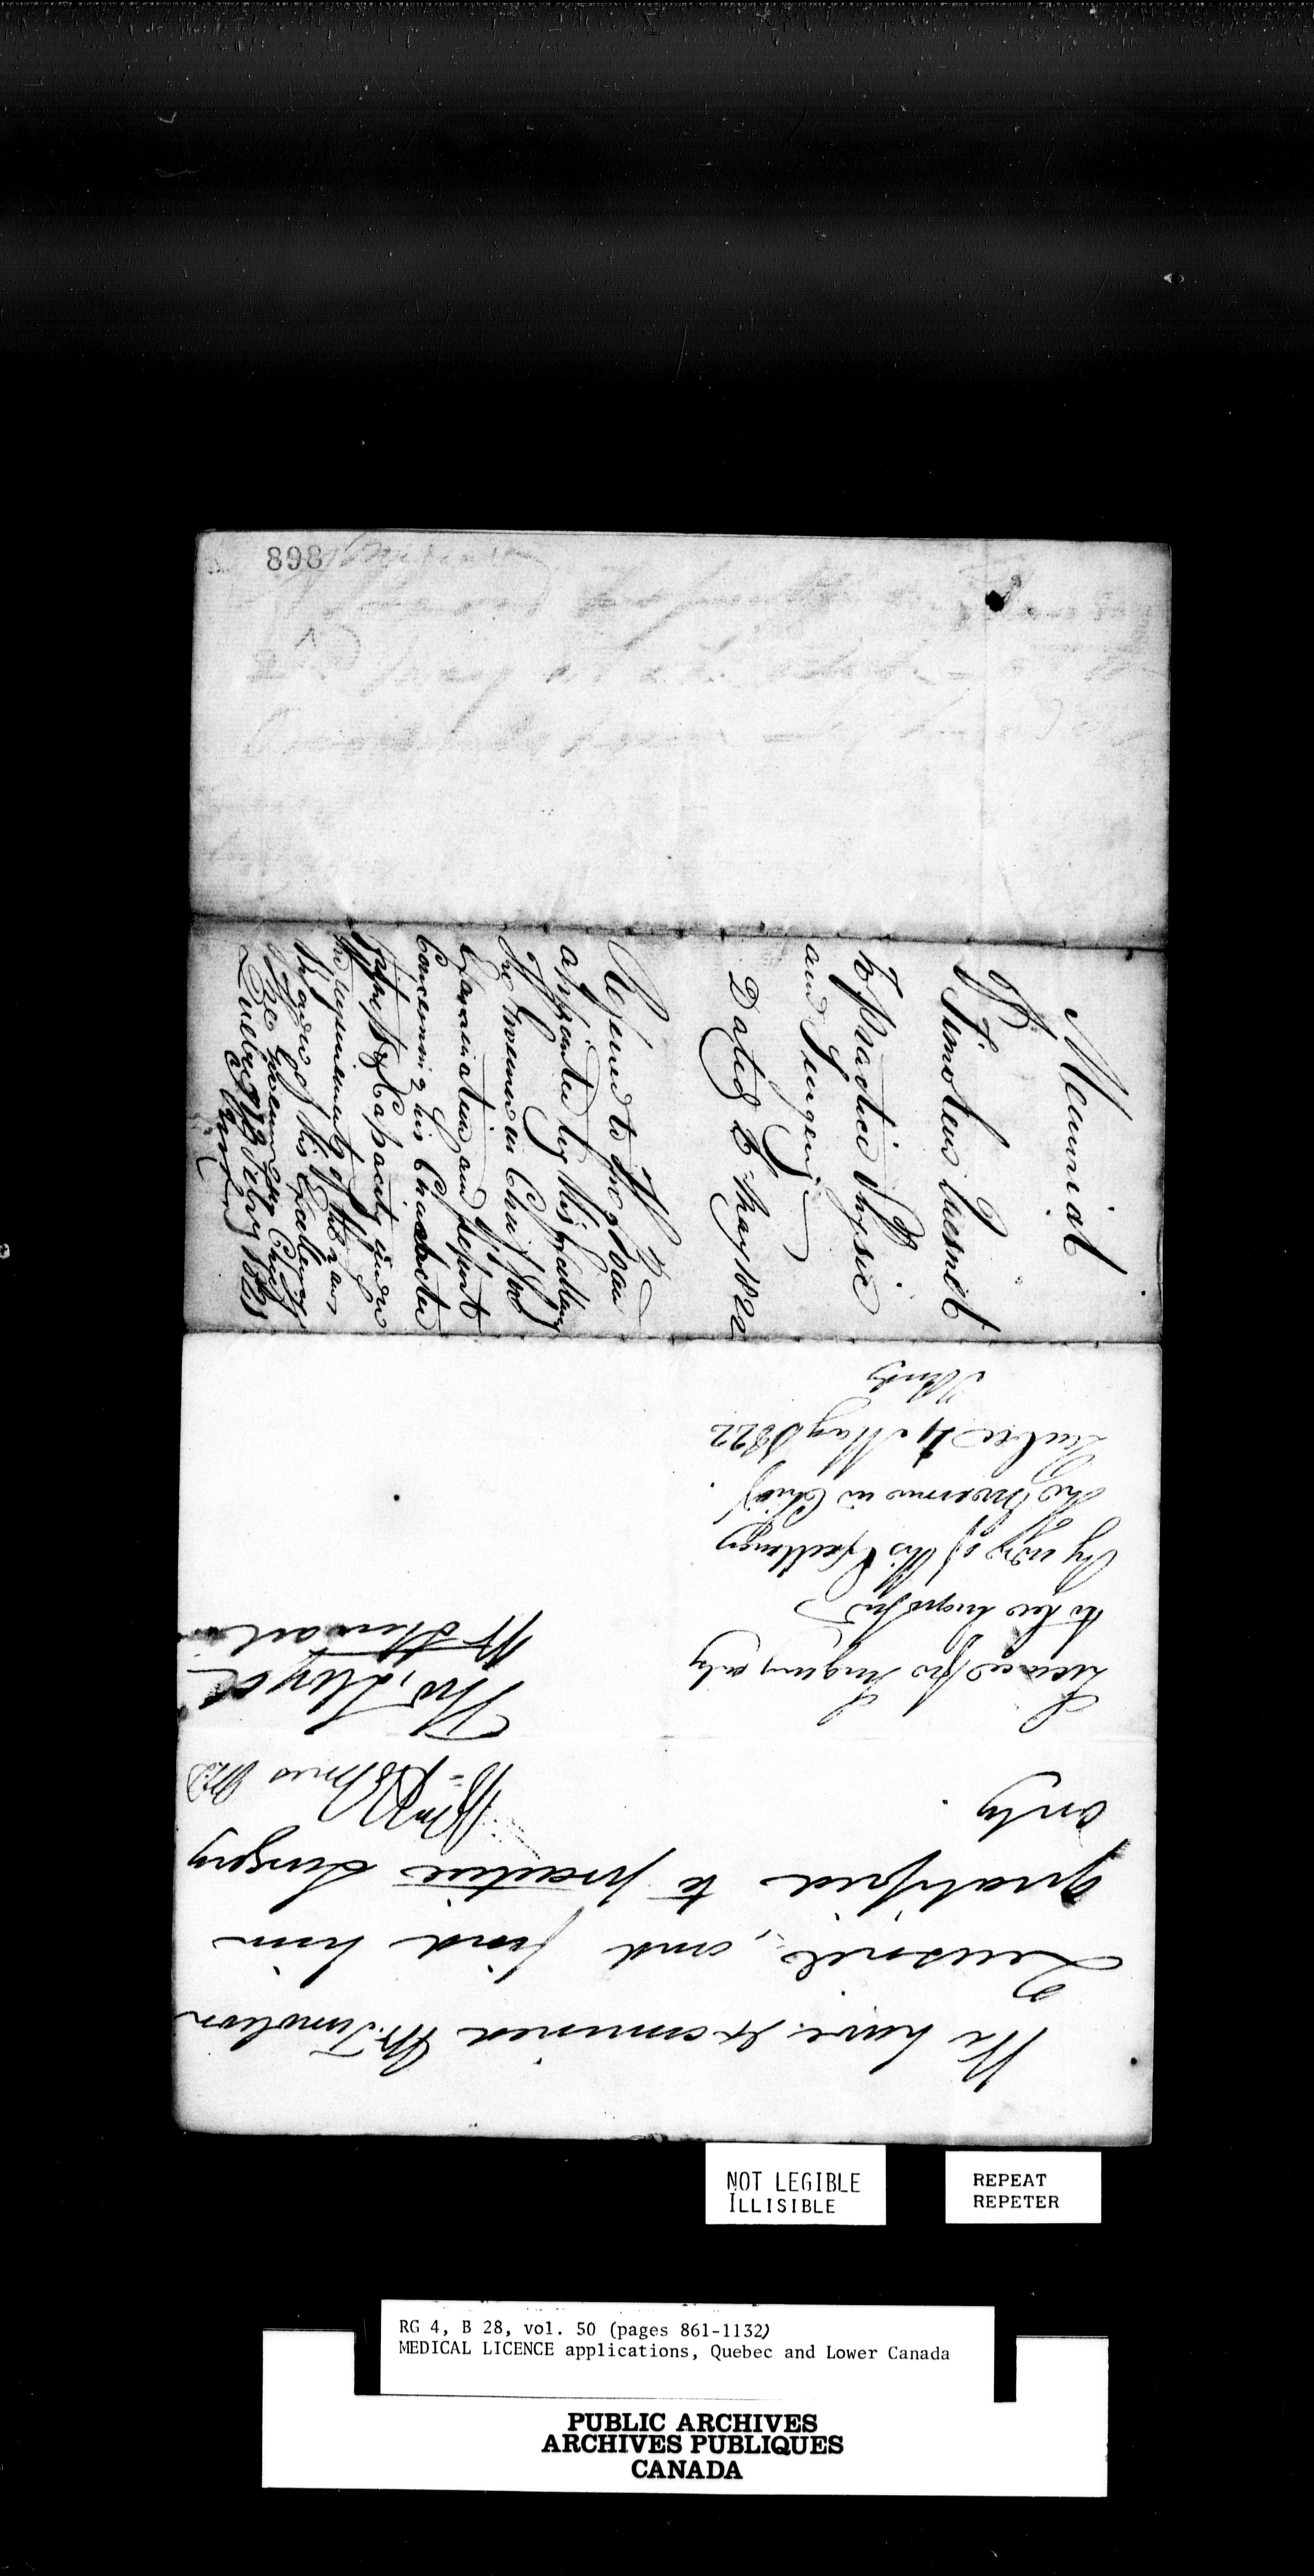 898
Memorial
of
Timoleon Quesnel
to Practice Physic
and Surgery
Dated 2 May 1822
Referred to the Board
appointed by His Excellency
the Governor in Chief for
Examination and report
Concerning his Character
Fitness & Capacity under
the requirements of the Law
By order of His Excellency
the Governor in Chief
Quebec
We have examined Mr. Timoleon
Quesnel, and find him
qualified to practice Surgery
only.
Wm Holmes MD
Thos. Lloyd
W Hacket
Licence for Surgery only
to be
By order of His Excellency
the Governor in Chief
Quebec 4 May 1822
NOT LEGIBLE
ILLISIBLE
REPEAT
REPETER
RG 4, B 28, vol. 50 (pages 861-1132)
MEDICAL LICENCE applications, Quebec and Lower Canada
PUBLIC ARCHIVES
ARCHIVES PUBLIQUES
CANADA